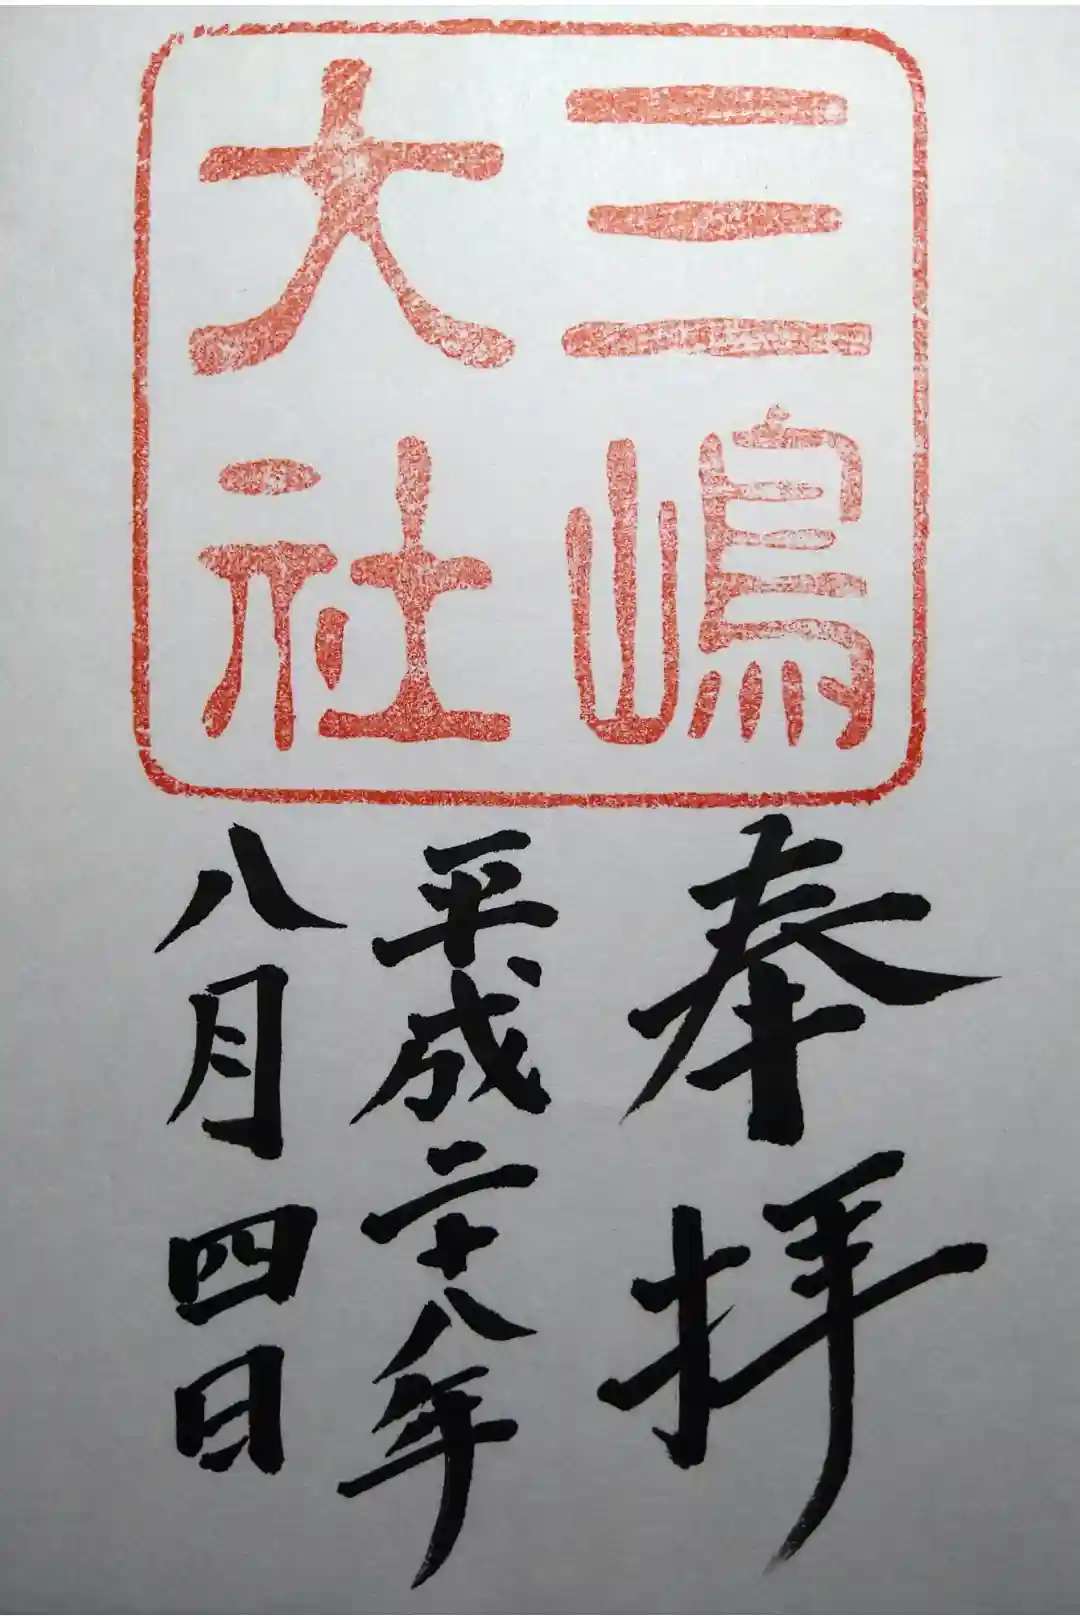 三嶋
大社
奉拝
平成二十八年
八月四日